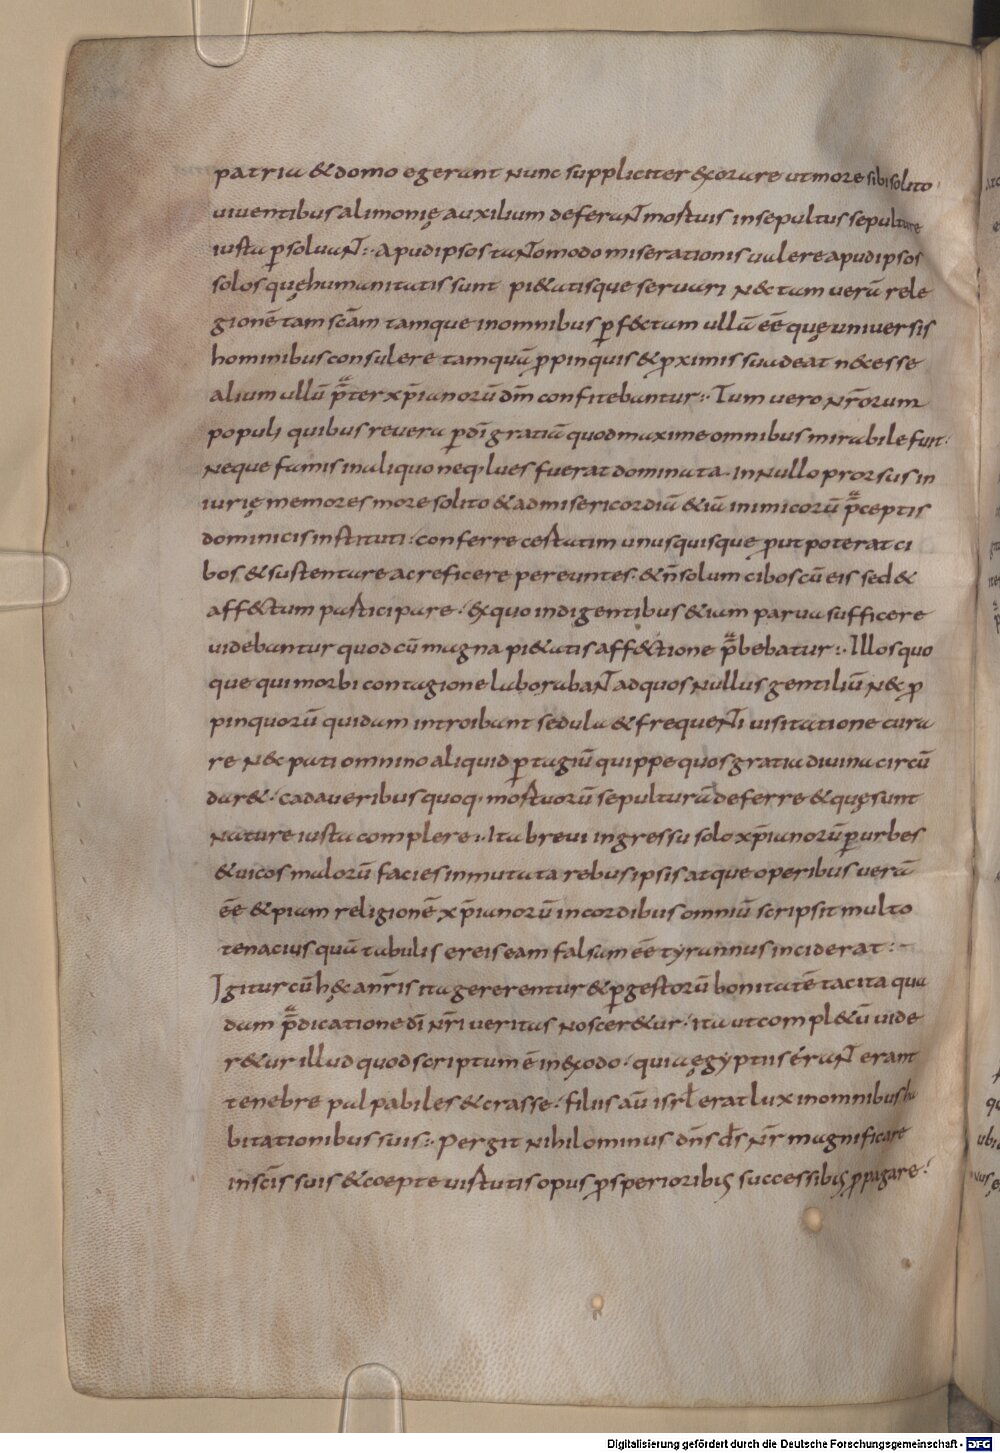 patria & domo egerant nunc suppliciter exorare ut more sibi solito
uiuentibus alimonię auxilium deferant mortuis insepultus sepulture
iusta p̱soluant:· Apud ipsos tantomodo miserationis ualere apud ipsos
solos quę humanitatis sunt pi&atisque seruari n&c tam uerū rele
gionē tam scām tamque in omnibus p̱f&ctum ullū eē quę uniuersis
hominibus consulere tamquā ꝓpinquis & ꝓximis suadeat necesse
alium ullū p̄ter xp̄ianorū dm̄ confitebantur:· Tum uero nr̄orum
populi quibus reuera p̱ dī gratiā quod maxime omnibus mirabile fuit·
neque famis in aliquo neq; lues fuerat dominata. in nullo prorsus in
iurię memores more solito & ad misericordiā &iā inimicorū p̄ceptis
dominicis instituti: conferre certatim unusquisque ꝓut poterat ci
bos & sustentare ac reficere pereuntes· & n̄ solum cibos cū eis sed &
aff&ctum participare· Ex quo indigentibus &iam parua sufficere
uidebantur quod cū magna pi&atis aff&ctione p̄bebatur:· Illos quo
que qui morbi contagione laborabant ad quos nullus gentiliū n&c ꝓ
pinquorū quidam introibant sedula & frequenti uisitatione cura
re n&c pati omnino aliquid p̱ tagiū quippe quos gratia diuina circū
dar&· cadaueribus quoq; mortuorū sepulturā deferre & quę sunt
nature iusta complere:· Ita breui ingressu solo xp̄ianorū p̱ urbes
& uicos malorū facies inmutata rebus ipsis atque operibus uerā
eē & piam religionē xp̄ianorū in cordibus omniū scripsit multo
tenacius quā tabulis ereis eam falsam eē tyrannus inciderat:·
Igitur cū h&c a nr̄is ita gererentur & p̱ gestorū bonitatē tacita qua
dam p̄dicatione dī nr̄i ueritas noscer&ur· ita ut compl&ū uide
r&ur illud quod scriptum ē in exodo· quia ęgyptiis erant erant
tenebre palpabiles & crasse· filiis aū isrl̄ erat lux in omnibus ha
bitationibus suis:· Pergit nihilominus dn̄s ds̄ nr̄ magnificare
in scīs suis & coepte uirtutis opus ꝓsperioribus successibus ꝓpagare·
Digitalisierung gefördert durch die Deutsche Forschungsgemeinschaft - DFG